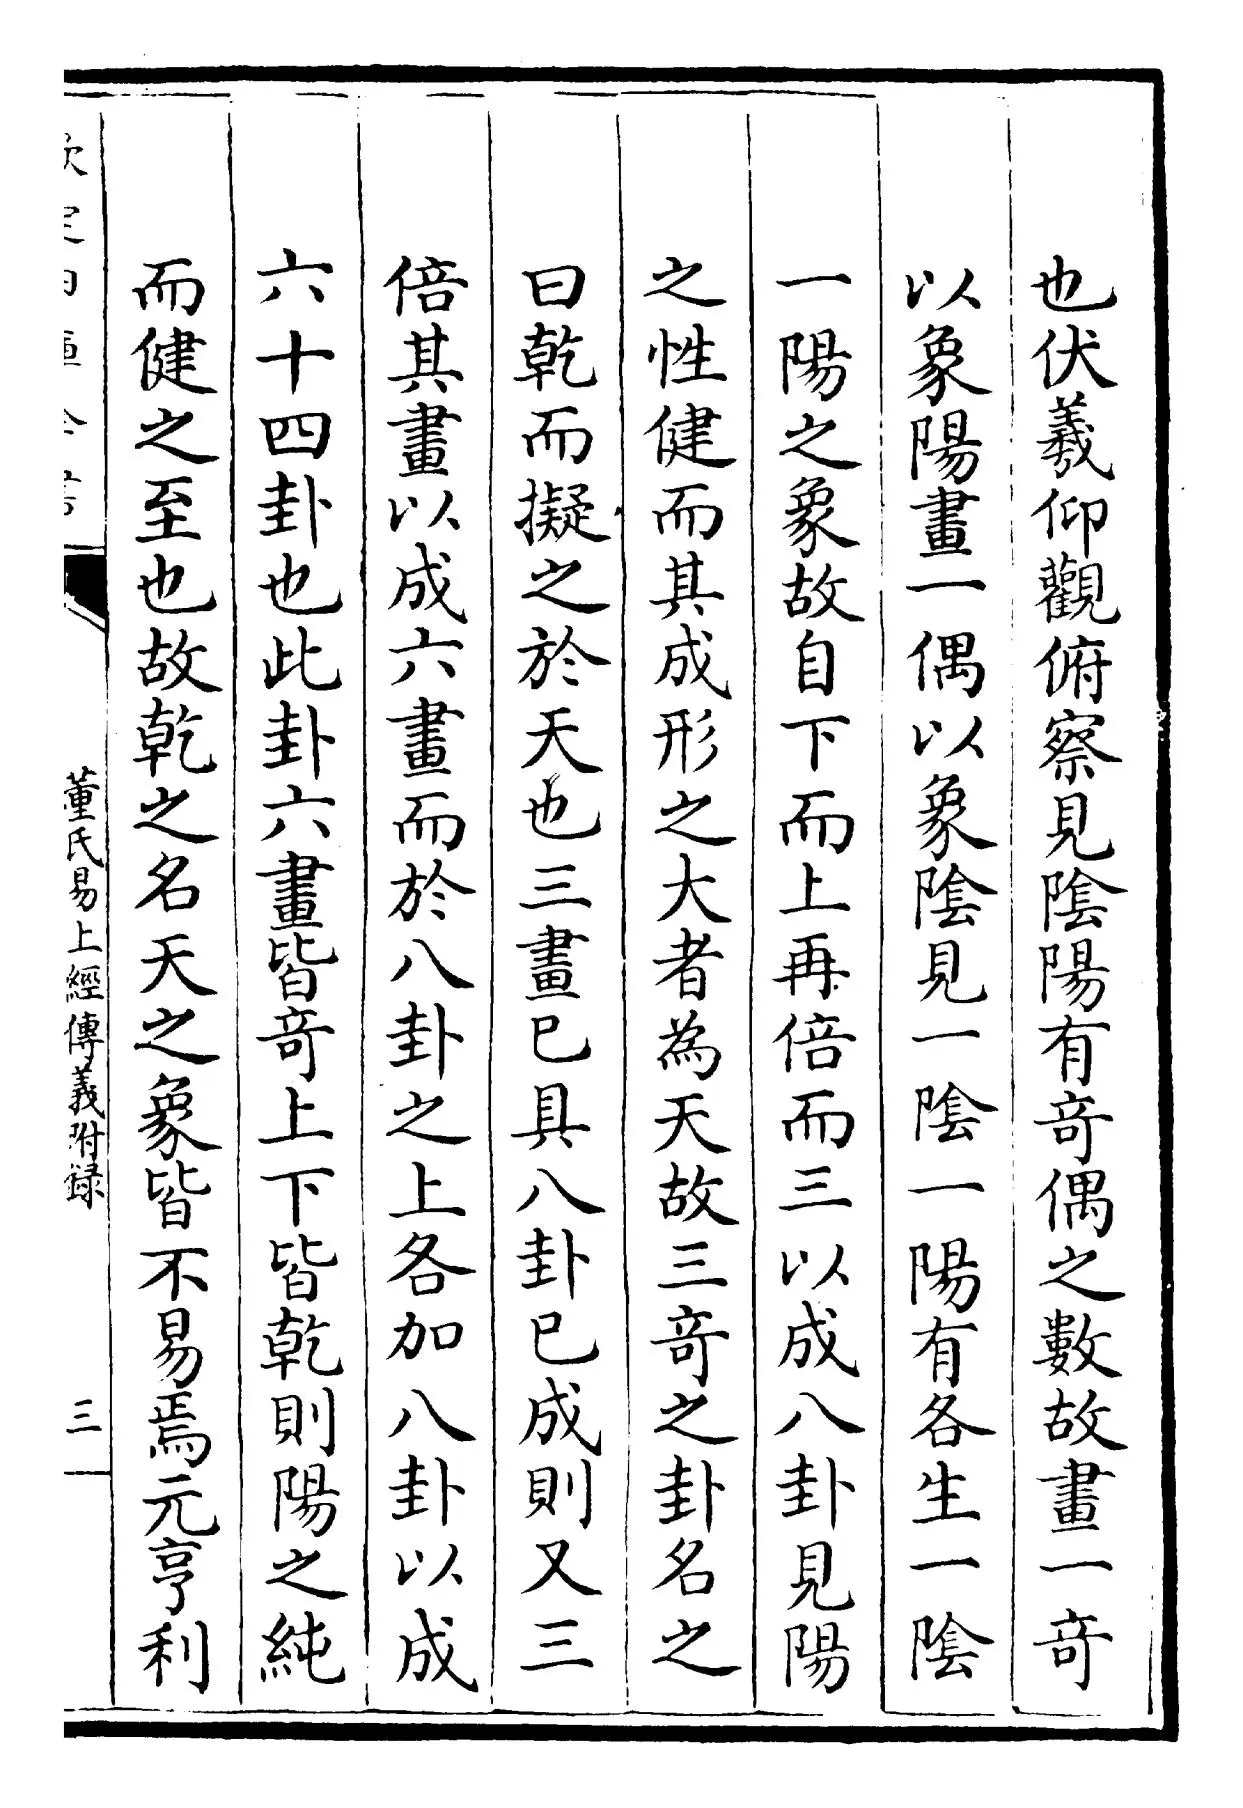 也伏羲仰觀俯察見陰陽有竒偶之數故畫一竒
以象陽畫一偶以象陰見一陰一陽有各生一陰
一陽之象故自下而上再倍而三以成八卦見陽
之性健而其成形之大者為天故三竒之卦名之
曰乾而擬之於天也三畫已具八卦已成則又三
倍其畫以成六畫而於八卦之上各加八卦以成
六十四卦也此卦六畫皆竒上下皆乾則陽之純
而健之至也故乾之名天之象皆不易焉元亨利
董氏易上經傳義附録
三